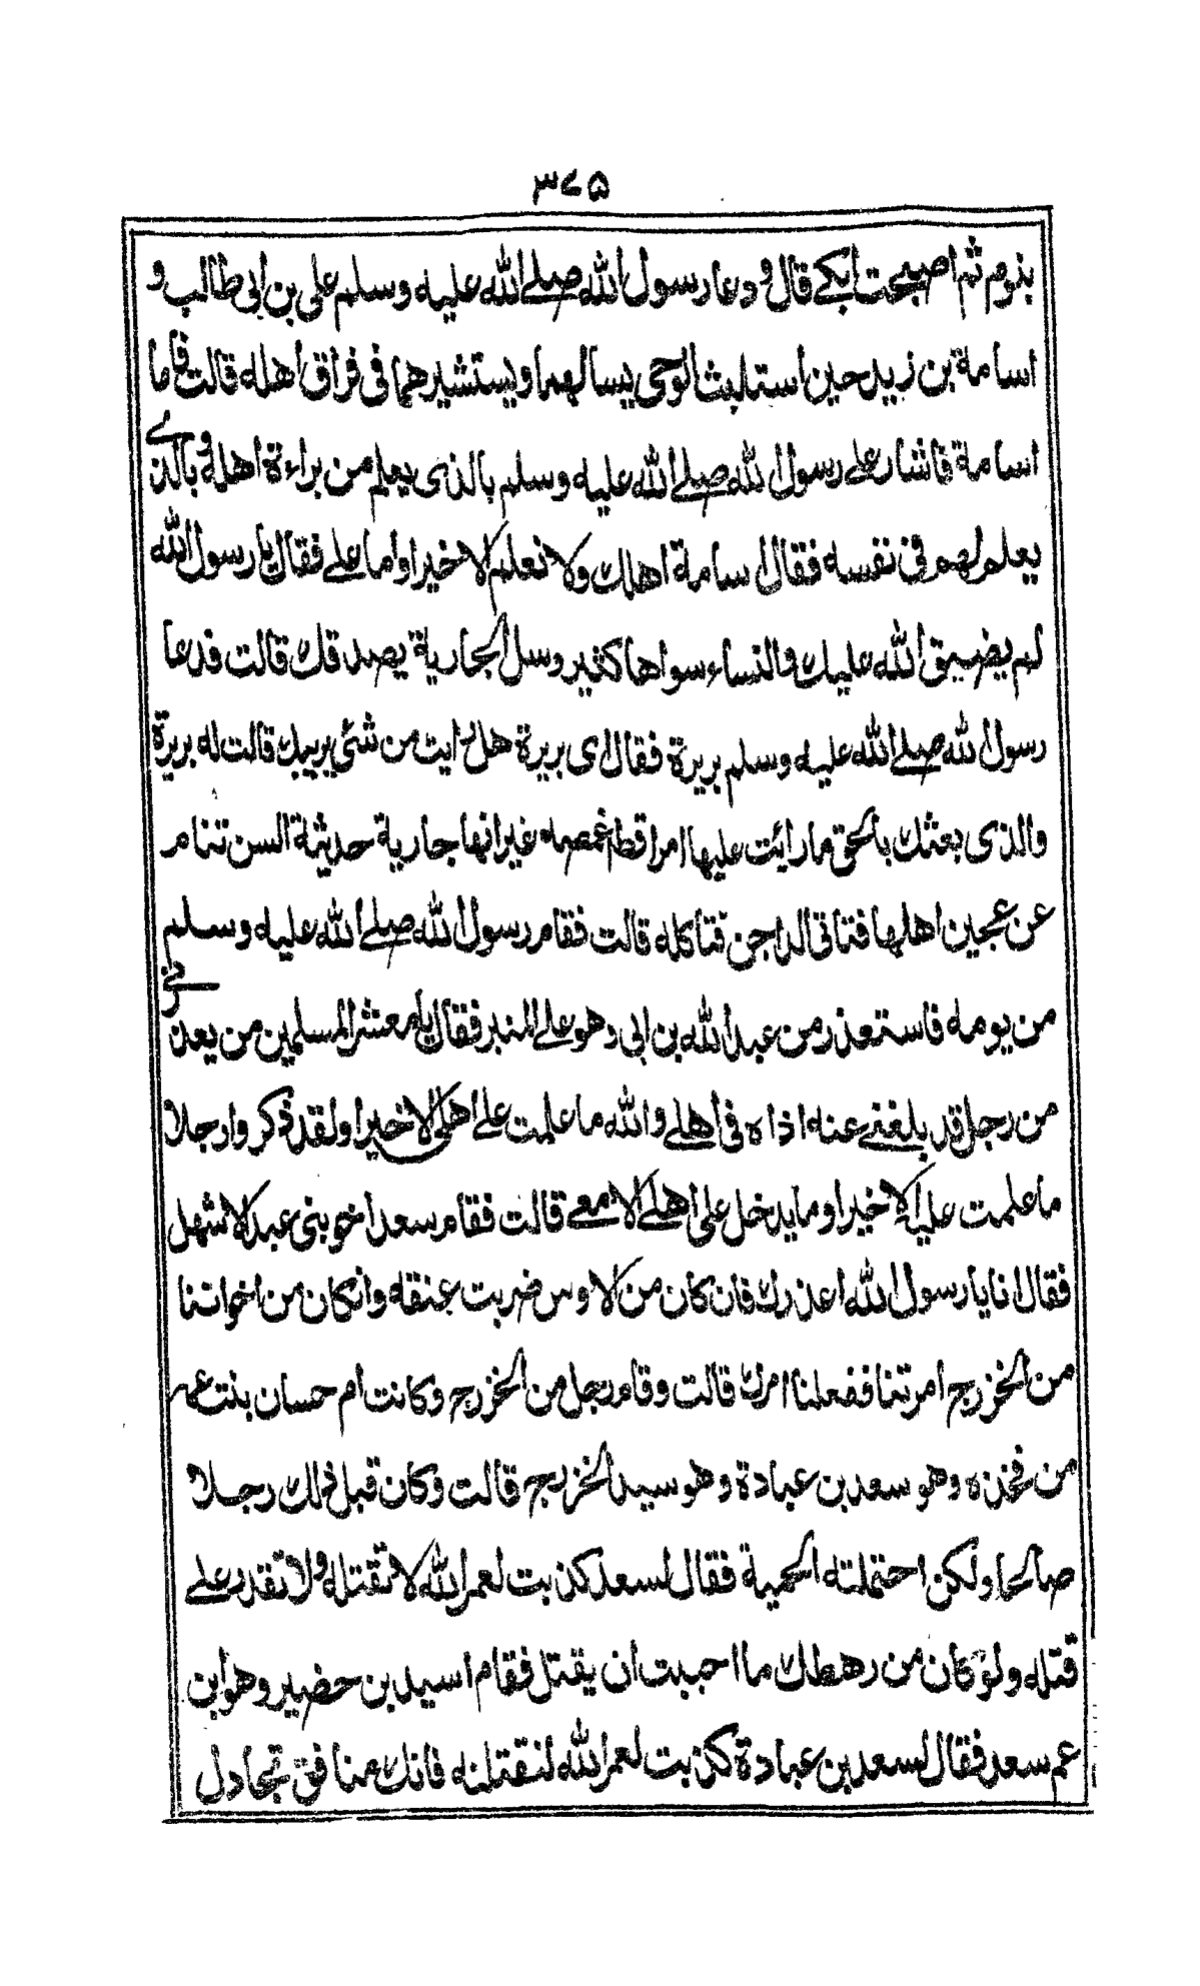 ٣٧٥
بنوم ثم اصبحت ابكى قال ودعا رسول الله صلى الله عليه وسلم على بن ابى طالب و
اسامة بن زيد حين استلبث الوحى يسالهما ويستشيرهما فى فراق اهله قالت فاما
اسامة فاشار على رسول الله صلى الله عليه وسلم بالذى يعلم من براءة اهله وبالذى
يعلم لهم فى نفسه فقال اسامة اهلك ولا نعلم الا خيرا واما على فقال يا رسول الله
لم يضيق الله عليك والنساء سواها كثير وسل الجارية يصدقك قالت فدعا
رسول الله صلى الله عليه وسلم بريرة فقال اى بريرة هل رايت من شئ يريبك قالت له بريرة
والذى بعثك بالحق ما رائت عليها امرا قط اغمصه غير انها جارية حديثة السن تنام
عن عجين اهلها فتاتى الداجن فتاكله قالت فقام رسول الله صلى الله عليه وسلم
من يومه فاستعذر من عبد الله بن ابى وهو على المنبر فقال يا معشر المسلمين من يعذرنى
من رجل قد بلغنى عنه اذاه فى اهلى والله ما علمت على اهلى الا خيرا ولقد ذكروا رجلا
ما علمت عليه الا خيرا وما يدخل على اهلى الا معى قالت فقام سعد اخو بنى عبد الاشهل
فقال انا يا رسول الله اعذرك فان كان من الاوس ضربت عنقه وان كان من اخواننا
من الخزرج امرتنا ففعلنا امرك قالت وقام رجل من الخزرج وكانت ام حسان بنت عمه
من فخذه وهو سعد بن عبادة وهو سيد الخزرج قالت وكان قبل ذلك رجلا
صالحا ولكن احتملته الحمية فقال لسعد كذبت لعمر الله لا تقتله ولا تقدر على
قتله ولو كان من رهطك ما احببت ان يقتل فقام اسيد بن حضير وهو ابن
عم سعد فقال لسعد بن عبادة كذبت لعمر الله لنقتلنه فانك منافق تجادل